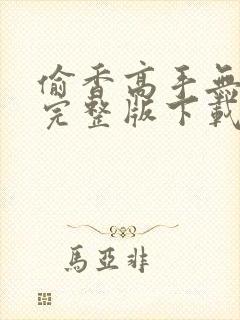 偷香高手無
完整版下載
馬亞非